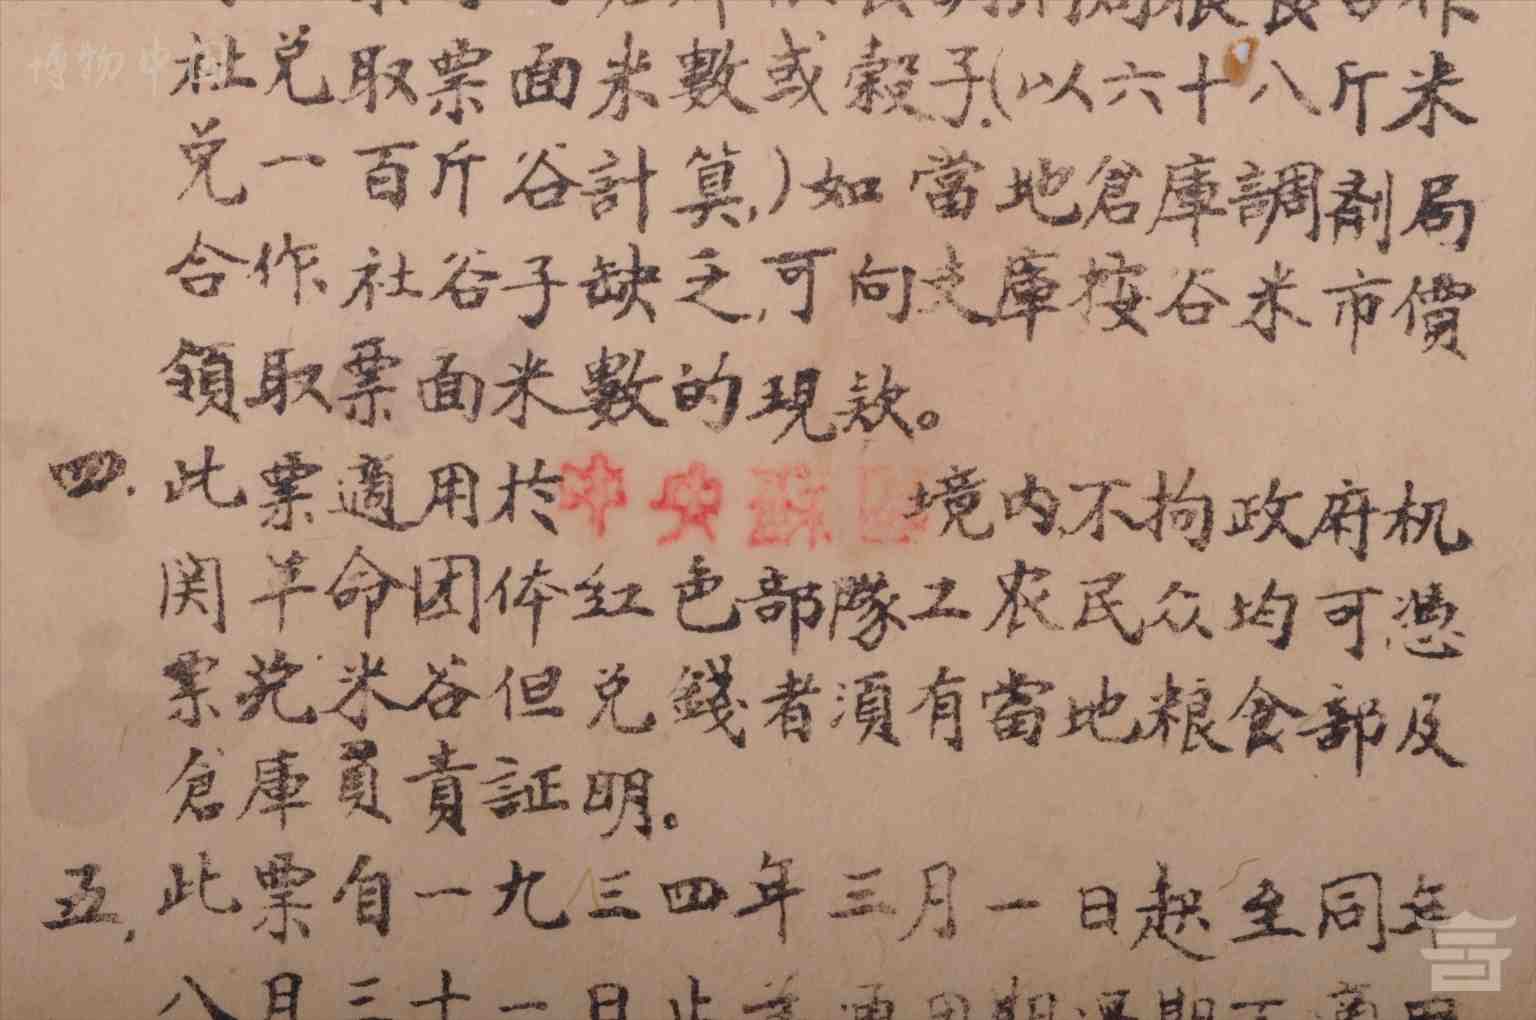 博物中国
社兑取票面米數或穀子(以六十八斤米
兑一百斤谷計算,)如當地倉庫調剤局
合作社谷子缺乏,可向支庫按谷米市價
領取票面米數的現款。
四.此票適用於中央苏區境内,不拘政府机
関革命团体红色部隊工农民众均可憑
票兑米谷但兑錢者須有當地粮食部及
倉庫員責証明。
五,此票自一九三四年三月一日起至同年
八月三十一日止為通用期過期不適用